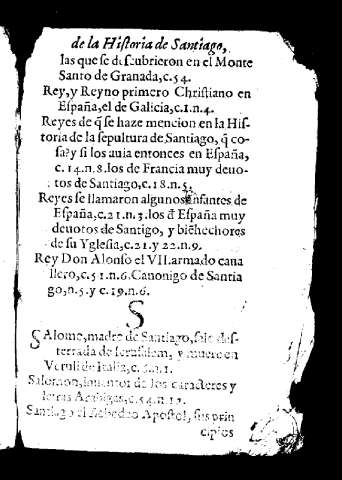 de la Historia de Santiago,
las que se descubrieron en el Monte
Santo de Granada,c.54.
Rey, y Reyno primero Christiano en
España,el de Galicia,c.1.n.4.
Reyes de q̃ se haze mencion en la His-
toria de la sepultura de Santiago, q̃ co-
sa?y si los auia entonces en España,
c.14.n.8.los de Francia muy deuo-
tos de Santiago,c.18.n.5.
Reyes se llamaron algunos Infantes de
España,c.21.n.5.los d̃ España muy
deuotos de Santigo, y biẽhechores
de su Yglesia,c.21.y 22.n.9.
Rey Don Alonso el VII.armado caua
llero,c.51.n.6.Canonigo de Santia
go,n.5.y c.19.n.6.
S
SAlome,madre de Santiago, sale des-
terrada de Ierusalem, y muere en
Veruli de Italia,c.
Salomon,inuentor de los caracteres y
letras Arabigas,c.54.n.
Santiago el Zebedeo Apostol, sus prin
cipios